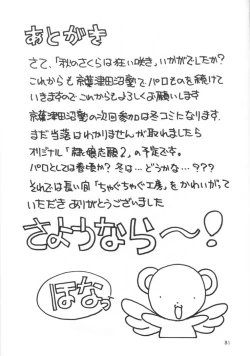 あとがき
さて、「秋のさくらは狂い咲き」いかがでしたか?
これからも 京葉津田沼塾でパロものを続けて
いきますので これからもよろしくお願いします
京葉津田沼塾の次回参加は冬コミになります
まだ当落はわかりませんが取れましたら
オリジナル「嬢志願2」の予定です。
パロとしては春頃か? 冬は…どうかな…???
それでは長い間「ちゃぐちゃぐ工房」をかわいがって
いただき ありがとうございました
さようなら〜!
ほなっ
31